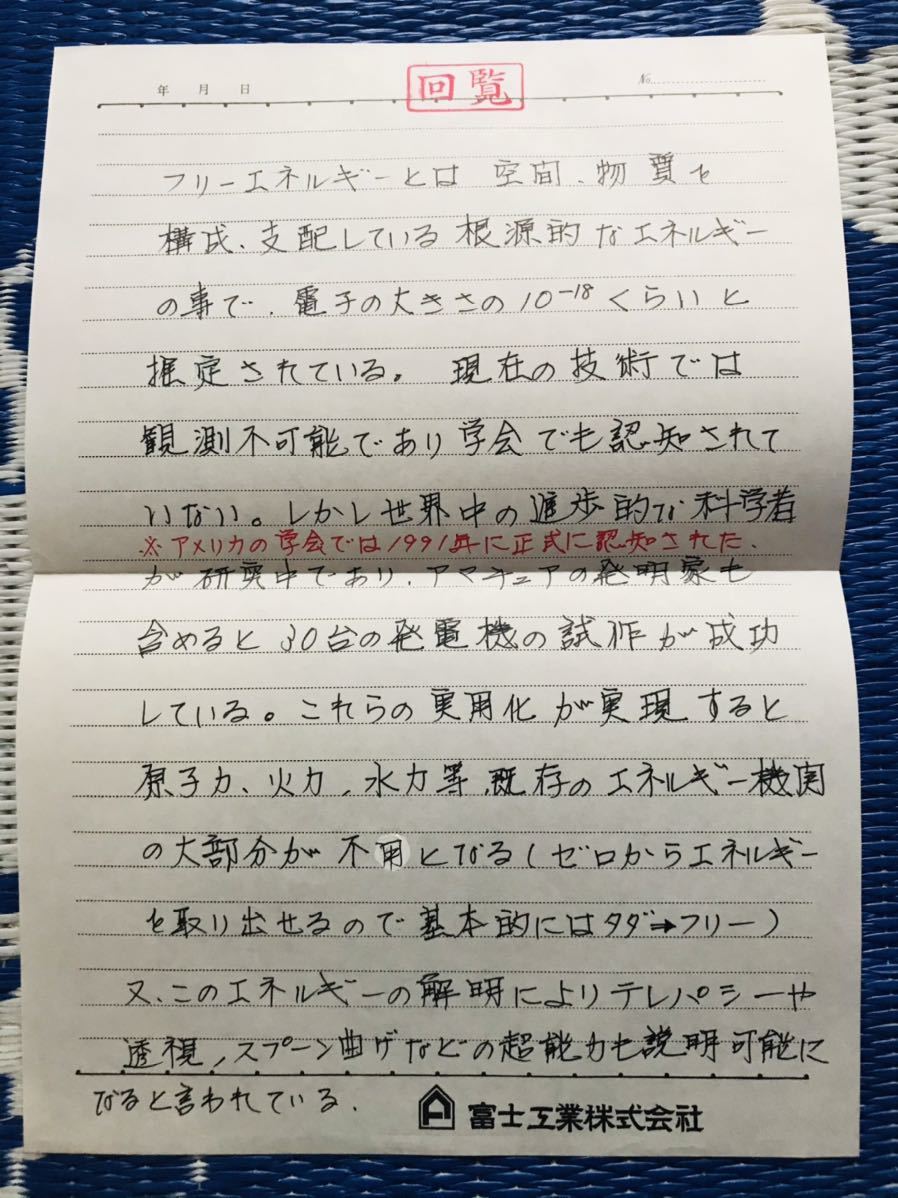 回覧
年 月 日
No.
フリーエネルギーとは 空間、物質を
構成、支配している根源的なエネルギー
の事で、電子の大きさの10⁻¹⁸くらいと
推定されている。 現在の技術では
観測不可能であり学会でも認知されて
いない。しかし世界中の進歩的な科学者
※アメリカの学会では1991年に正式に認知された、
が研究中であり、アマチュアの発明家も
含めると30台の発電機の試作が成功
している。これらの実用化が実現すると
原子力、火力、水力等、既存のエネルギー機関
の大部分が不用となる(ゼロからエネルギー
を取り出せるので基本的にはタダ⇒フリー)
又、このエネルギーの解明によりテレパシーや
透視、スプーン曲げなどの超能力も説明可能に
なると言われている、
富士工業株式会社